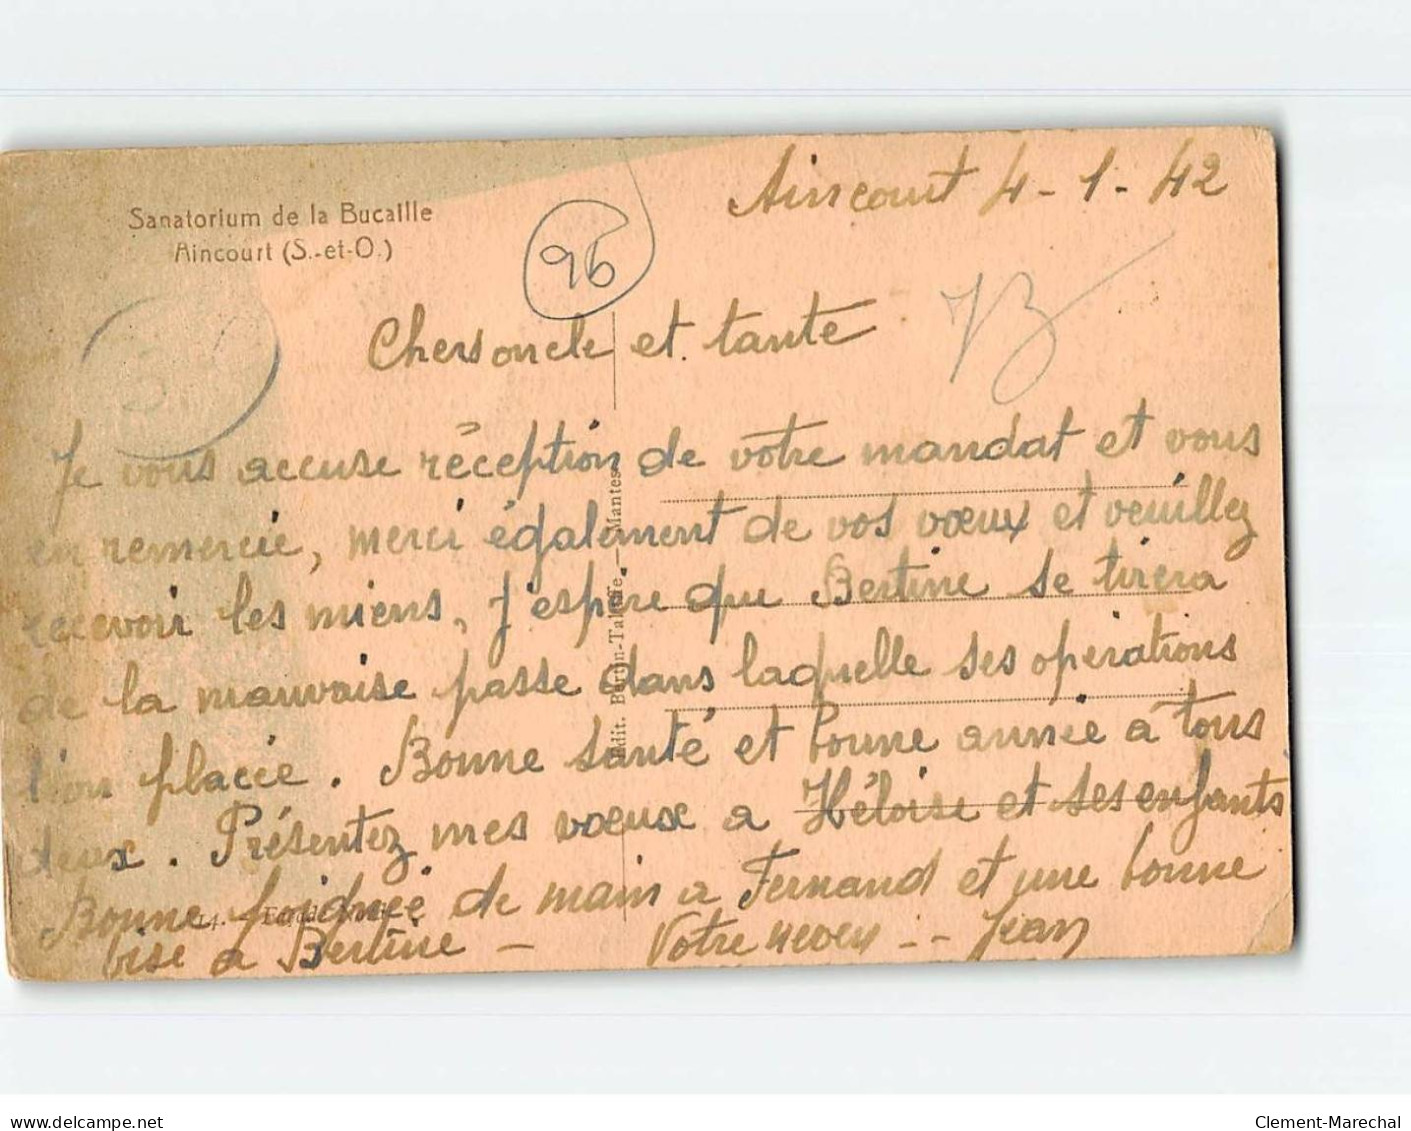 Aincourt 4-1-42
Sanatorium de la Bucaille
Aincourt (S.-et-O.)
96
Chers oncle et tante
Je vous accuse réception de votre mandat et vous
en remercie, merci également de vos voeux et veuillez
recevoir les miens, J'espère que Bertine se tirera
de la mauvaise passe dans laquelle ses opérations
l'on placée. Bonne santé et bonne année à tous
deux. Présentez mes voeux a Héloise et ses enfants
Bonne poignée de main a Fernand et une bonne
bise a Bertine - Votre neveu -- Jean
14. - Façade
Edit. Bertin-Taleffe - Mantes
delcampe.net
Clement-Marechal